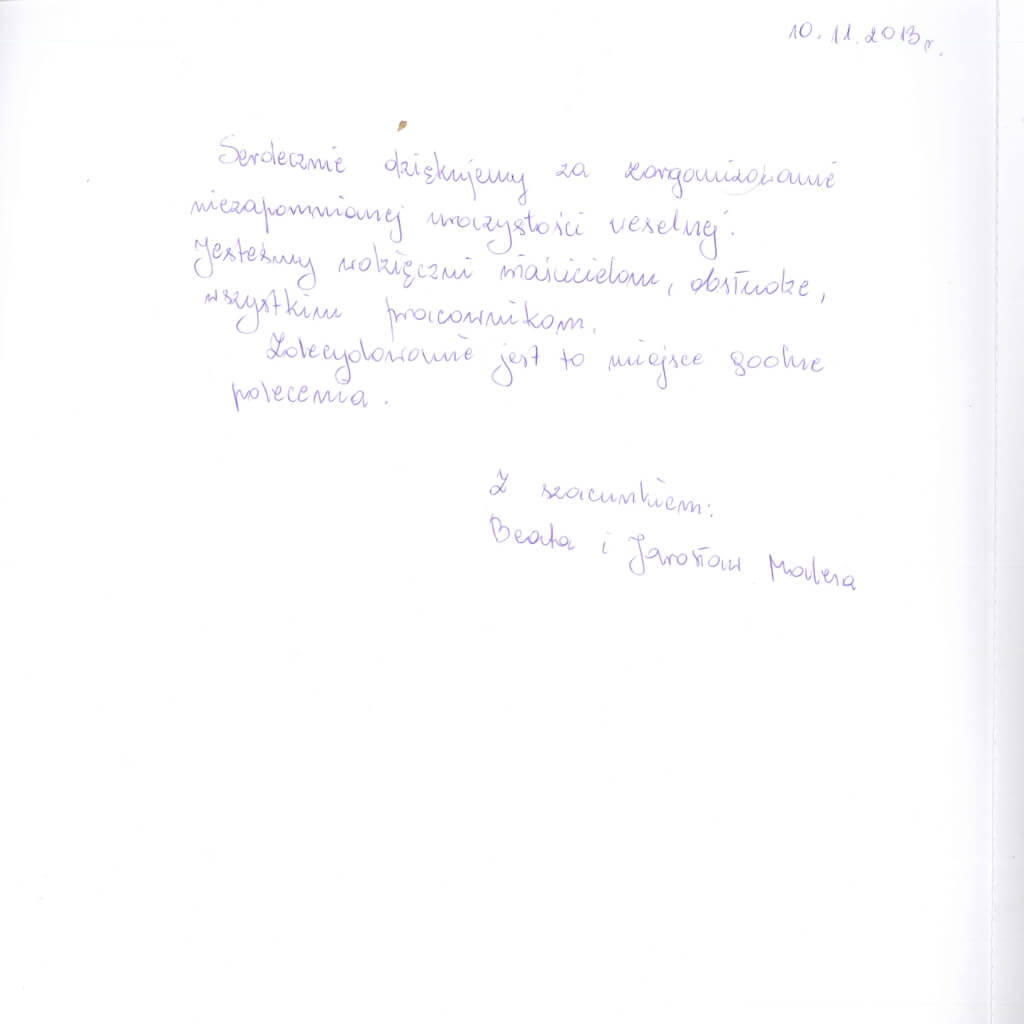 10.11.2013r.
Serdecznie dziękujemy za zorganizowanie
niezapomnianej uroczystości weselnej.
Jesteśmy wdzięczni właścicielom, obsłudze,
wszystkim pracownikom.
Zdecydowanie jest to miejsce godne
polecenia.
Z szacunkiem:
Beata i Jarosław